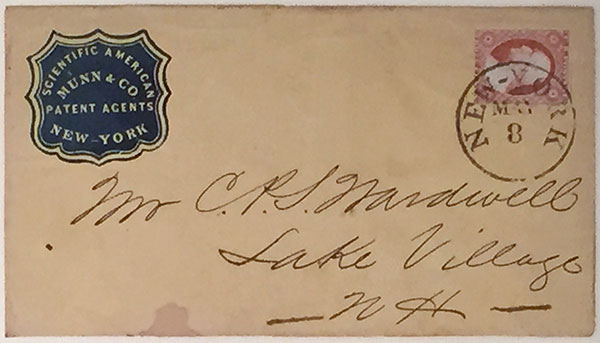 SCIENTIFIC AMERICAN
MUNN & CO
PATENT AGENTS
NEW-YORK
NEW-YORK
8
Mr C. P. S. Wardwell
Lake Village
— NH —